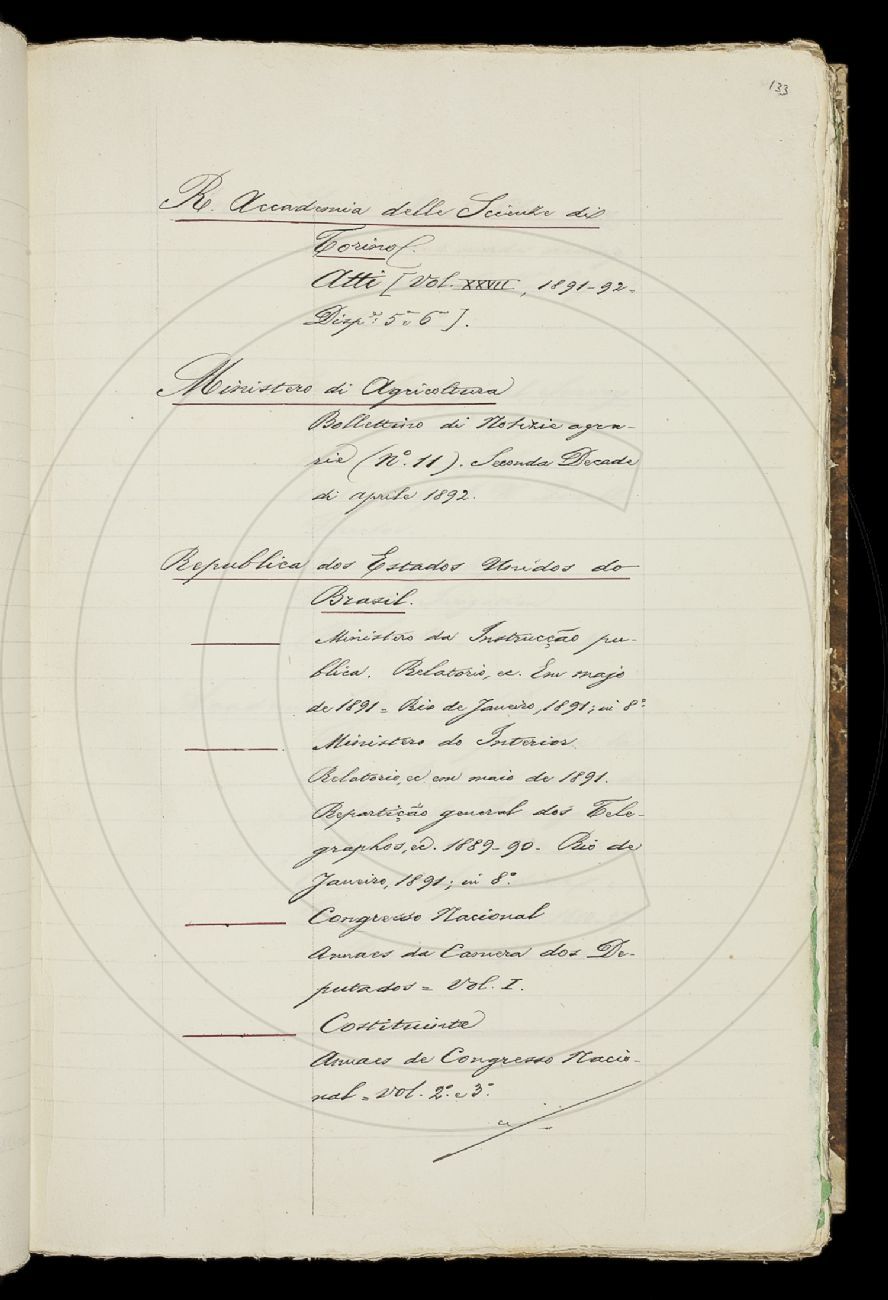 133
R. Accademia delle Scienze di
Torino.
Atti [Vol. XXVII, 1891-92=
Disp.e: 5a e 6a].
Ministero di Agricoltura
Bollettino di Notizie agra-
rie (No. 11). Seconda Decade
di aprile 1892.
Republica dos Estados Unidos do
Brasil.
Ministero da Instrucção pu-
blica. Relatorio, ec. Em majo
de 1891 = Rio de Janeiro, 1891; in 8°.
Ministero do Interior.
Relatorio, ec em maio de 1891.
Repartição general dos Tele-
graphos, ec. 1889-90 - Rio de
Janeiro, 1891; in 8°.
Congresso Nacional
Annaes da Camera dos De-
putados = Vol. I.
Costituinte
Annaes de Congresso Nacio-
nal = Vol. 2° e 3°